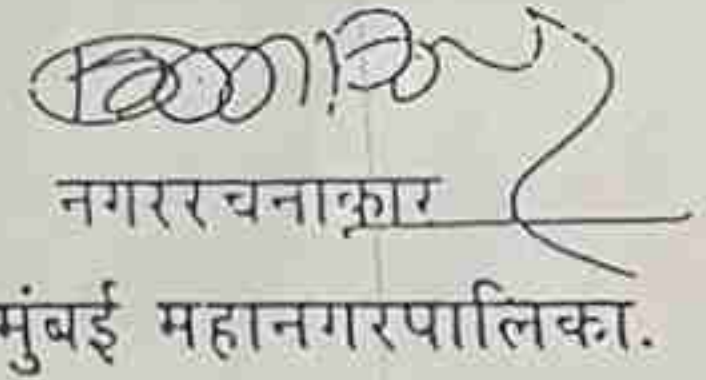 नगररचनाकार
मुंबई महानगरपालिका.